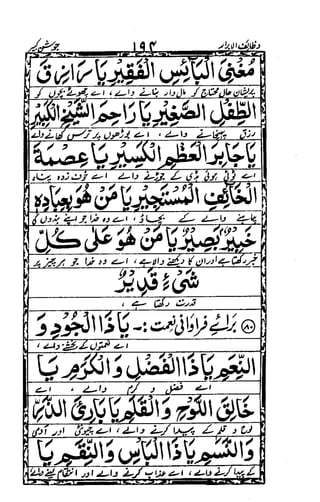 وظائف الابرار ۱۹۴ جوشن کبیر
مُغْنِيَ الْبَائِسِ الْفَقِيرِ يَا رَازِقَ
پریشان حال محتاج کو مال دار بنانے والے، اے چھوٹے بچوں کو
الطِّفْلِ الصَّغِيرِ يَا رَاحِمَ الشَّيْخِ الْكَبِيرِ
رزق پہنچانے والے، اے بوڑھوں پر ترس کھانے والے
يَا جَابِرَ الْعَظْمِ الْكَسِيرِ يَا عِصْمَةَ
اے ٹوٹی ہوئی ہڈی کے جوڑنے والے، اے خوف زدہ پناہ
الْخَائِفِ الْمُسْتَجِيرِ يَا مَنْ هُوَ بِعِبَادِهِ
چاہنے والے کے بچاؤ، اے وہ خدا جو اپنے بندوں کی
خَبِيرٌ بَصِيرٌ يَا مَنْ هُوَ عَلَى كُلِّ
خبر رکھتا ہے اور ان کا دیکھنے والا ہے، اے وہ خدا جو ہر چیز پر
شَيْءٍ قَدِيرٌ
قدرت رکھتا ہے،
(۸۰) برائے فراوانی نعمت :۔ يَا ذَا الْجُودِ وَ
اے نعمتوں کے بخشنے والے،
النِّعَمِ يَا ذَا الْفَضْلِ وَالْكَرَمِ يَا
اے فضل و کرم والے، اے
خَالِقَ اللَّوْحِ وَالْقَلَمِ يَا بَارِئَ الذَّرِّ
لوح و قلم کے پیدا کرنے والے، اے چیونٹی اور آدمی
وَالنَّسَمِ يَا ذَا الْبَأْسِ وَالنِّقَمِ يَا
کے پیدا کرنے والے، اے عذاب کرنے والے اور انتقام لینے والے